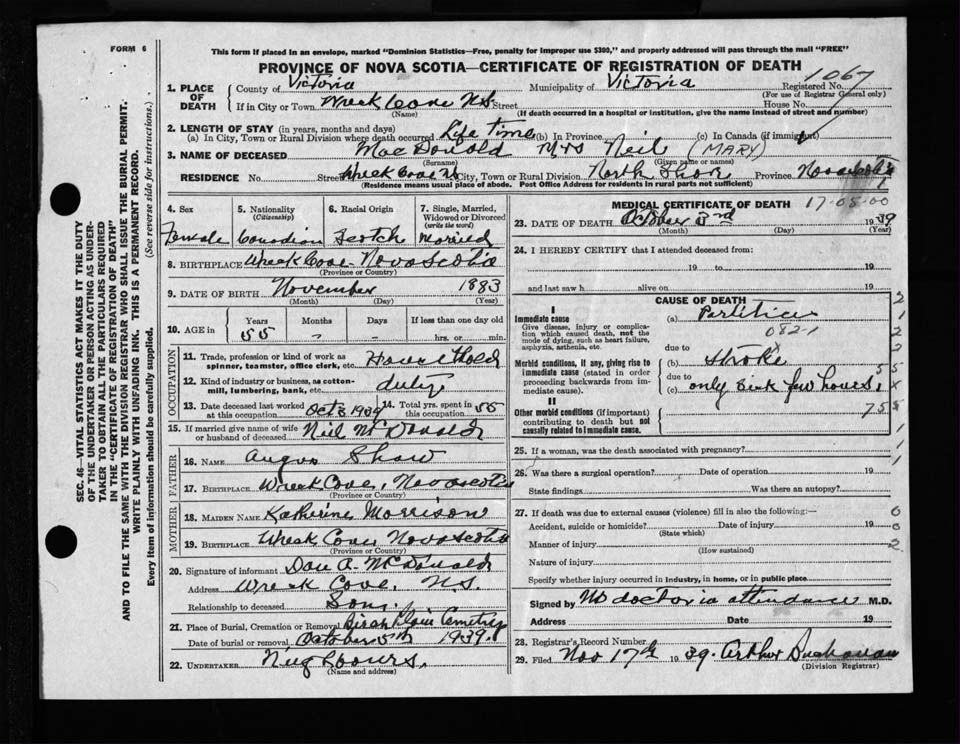 FORM 6
This form if placed in an envelope, marked "Dominion Statistics—Free, penalty for improper use $300," and properly addressed will pass through the mail "FREE"
PROVINCE OF NOVA SCOTIA—CERTIFICATE OF REGISTRATION OF DEATH
1067
1. PLACE OF DEATH
County of Victoria Municipality of Victoria Registered No.
(For use of Registrar General only)
If in City or Town Wreck Cove N.S. Street House No.
(Name) (If death occurred in a hospital or institution, give the name instead of street and number)
2. LENGTH OF STAY (in years, months and days)
(a) In City, Town or Rural Division where death occurred Life Time (b) In Province (c) In Canada (if immigrant)
3. NAME OF DECEASED MacDonald Mrs Neil (MARY)
(Surname) (Given name or names)
RESIDENCE No. Street Wreck Cove NS City, Town or Rural Division North Shore Province Nova Scotia
(Residence means usual place of abode. Post Office Address for residents in rural parts not sufficient)
4. Sex 5. Nationality (Citizenship) 6. Racial Origin 7. Single, Married, Widowed or Divorced (write the word)
Female Canadian Scotch Married
8. BIRTHPLACE Wreck Cove Nova Scotia
(Province or Country)
9. DATE OF BIRTH November 1883
(Month) (Day) (Year)
10. AGE in Years Months Days If less than one day old
55 " " hrs. or min.
OCCUPATION
11. Trade, profession or kind of work as spinner, teamster, office clerk, etc. Household
12. Kind of industry or business, as cotton-mill, lumbering, bank, etc. dutys
13. Date deceased last worked at this occupation Oct 3 1939 14. Total yrs. spent in this occupation 55
15. If married give name of wife or husband of deceased Neil McDonald
FATHER
16. NAME Angus Shaw
17. BIRTHPLACE Wreck Cove, Nova Scotia
(Province or Country)
MOTHER
18. MAIDEN NAME Katherine Morrison
19. BIRTHPLACE Wreck Cove, Nova Scotia
(Province or Country)
20. Signature of informant Dan A. McDonald
Address Wreck Cove, N.S.
Relationship to deceased Son.
21. Place of Burial, Cremation or Removal Birch Plain Cemetry
Date of burial or removal October 5th 1939.
22. UNDERTAKER Neighbours.
(Name and address)
MEDICAL CERTIFICATE OF DEATH
17-05-00
23. DATE OF DEATH October 3rd 1939
(Month) (Day) (Year)
24. I HEREBY CERTIFY that I attended deceased from:
19 to 19
and last saw h alive on 19
CAUSE OF DEATH
I
Immediate cause (a)
Give disease, injury or complication which caused death, not the mode of dying, such as heart failure, asphyxia, asthenia, etc.
082-1
due to
Morbid conditions, if any, giving rise to immediate cause (stated in order proceeding backwards from immediate cause).
(b) Stroke
due to
(c) only sick few hours.
II
Other morbid conditions (if important) contributing to death but not causally related to immediate cause.
25. If a woman, was the death associated with pregnancy?
26. Was there a surgical operation? Date of operation 19
State findings Was there an autopsy?
27. If death was due to external causes (violence) fill in also the following:—
Accident, suicide or homicide? Date of injury 19
(State which)
Manner of injury
(How sustained)
Nature of injury
Specify whether injury occurred in industry, in home, or in public place
Signed by No doctor in attendance M.D.
Address Date 19
28. Registrar's Record Number
29. Filed Nov 17th 1939. Arthur Buchanan
(Division Registrar)
SEC. 46—VITAL STATISTICS ACT MAKES IT THE DUTY
OF THE UNDERTAKER OR PERSON ACTING AS UNDER-
TAKER TO OBTAIN ALL THE PARTICULARS REQUIRED
IN THE "CERTIFICATE OF REGISTRATION OF DEATH"
AND TO FILE THE SAME WITH THE DIVISION REGISTRAR WHO SHALL ISSUE THE BURIAL PERMIT.
WRITE PLAINLY WITH UNFADING INK. THIS IS A PERMANENT RECORD.
Every item of information should be carefully supplied. (See reverse side for instructions.)